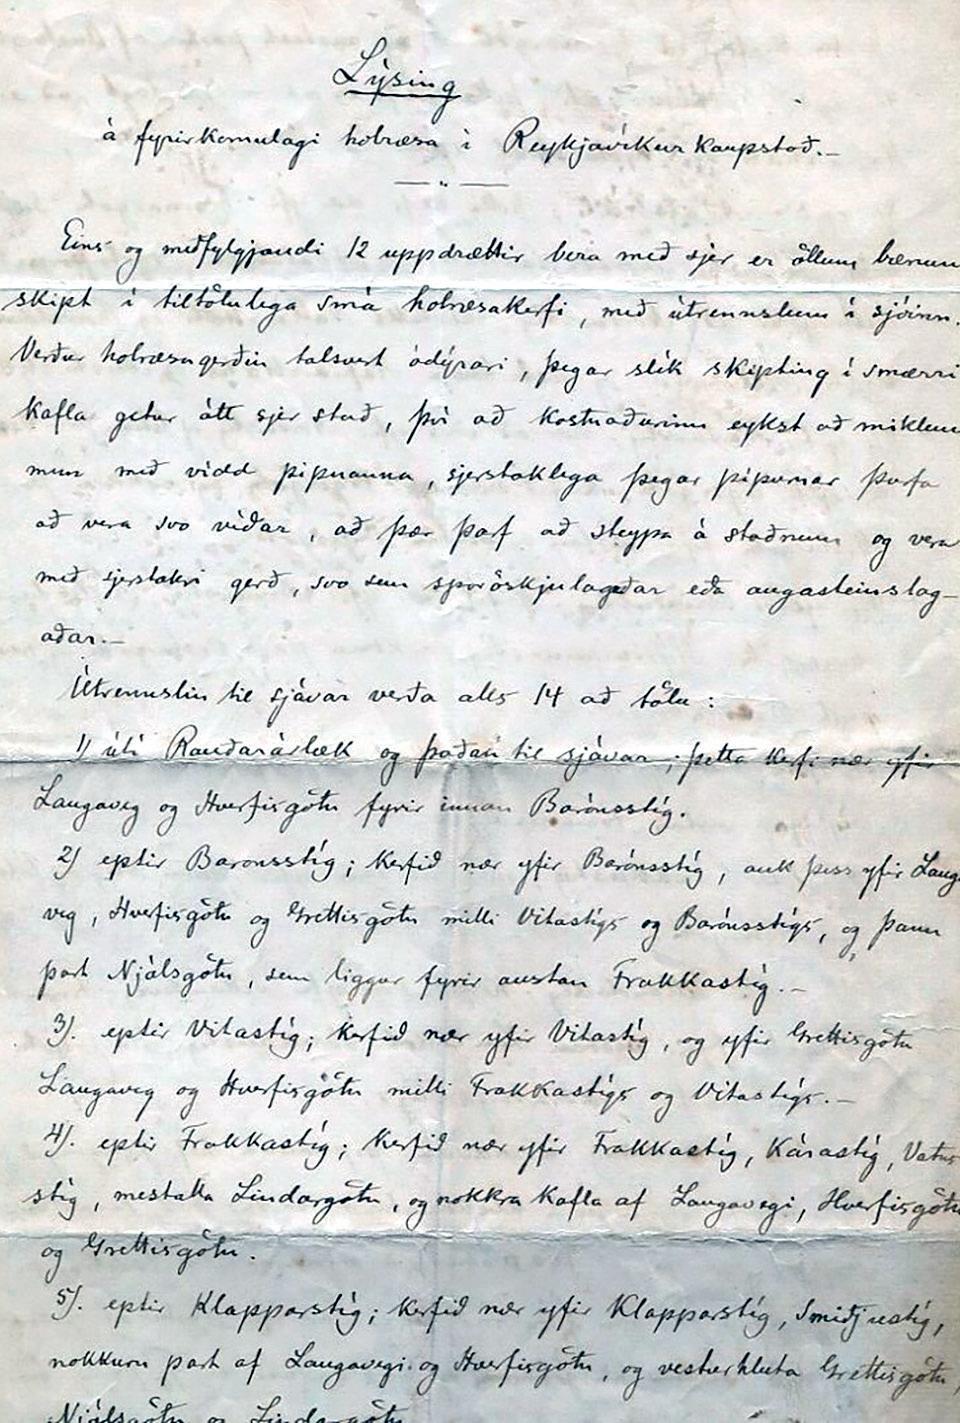 Lýsing
á fyrirkomulagi holræsa í Reykjavíkur kaupstað.—
Eins og meðfylgjandi 12 uppdrættir bera með sjer er öllum bænum
skipt í tiltölulega smá holræsakerfi, með útrennslum í sjóinn.
Verður holræsagerðin talsvert ódýrari, þegar slík skipting í smærri
kafla getur átt sjer stað, því að kostnaðurinn eykst að miklum
mun með vídd pípnanna, sjerstaklega þegar pípurnar þurfa
að vera svo víðar, að þær þarf að steypa á staðnum og vera
með sjerstakri gerð, svo sem sporöskjulagaðar eða augasteinslag-
aðar.—
Útrennslin til sjávar verða alls 14 að tölu:
1) úti Rauðarárlæk og þaðan til sjávar; þetta kerfi nær yfir
Laugaveg og Hverfisgötu fyrir innan Barónsstíg.
2) eptir Baronsstíg; kerfið nær yfir Barónsstíg, auk þess yfir Lauga
veg, Hverfisgötu og Grettisgötu milli Vitastígs og Barónsstígs, og þann
part Njálsgötu, sem liggur fyrir austan Frakkastíg.—
3). eptir Vitastíg; kerfið nær yfir Vitastíg, og yfir Grettisgötu
Laugaveg og Hverfisgötu milli Frakkastígs og Vitastígs.—
4). eptir Frakkastíg; kerfið nær yfir Frakkastíg, Kárastíg, Vatns-
stíg, mestalla Lindargötu, og nokkra kafla af Laugavegi, Hverfisgötu
og Grettisgötu.
5). eptir Klapparstíg; kerfið nær yfir Klapparstíg, Smiðjustíg,
nokkurn part af Laugavegi og Hverfisgötu, og vesturhluta Grettisgötu,
Njálsgötu og Lindargötu